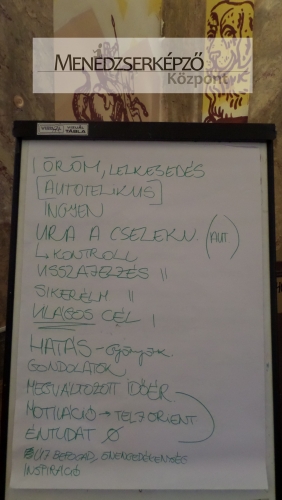 MENEDZSERKÉPZŐ
Központ
! ÖRÖM, LELKESEDÉS
[AUTOTELIKUS]
INGYEN
URA A CSELEKV. (AUT.
↳ KONTROLL
VISSZAJELZÉS "
SIKERÉLM "
VILÁGOS CÉL !
HATÁS –
GONDOLATOK
MEGVÁLTOZOTT IDŐÉR
MOTIVÁCIÓ → TELJ. ORIENT
ÉNTUDAT Ø
BEFOGAD,
INSPIRÁCIÓ